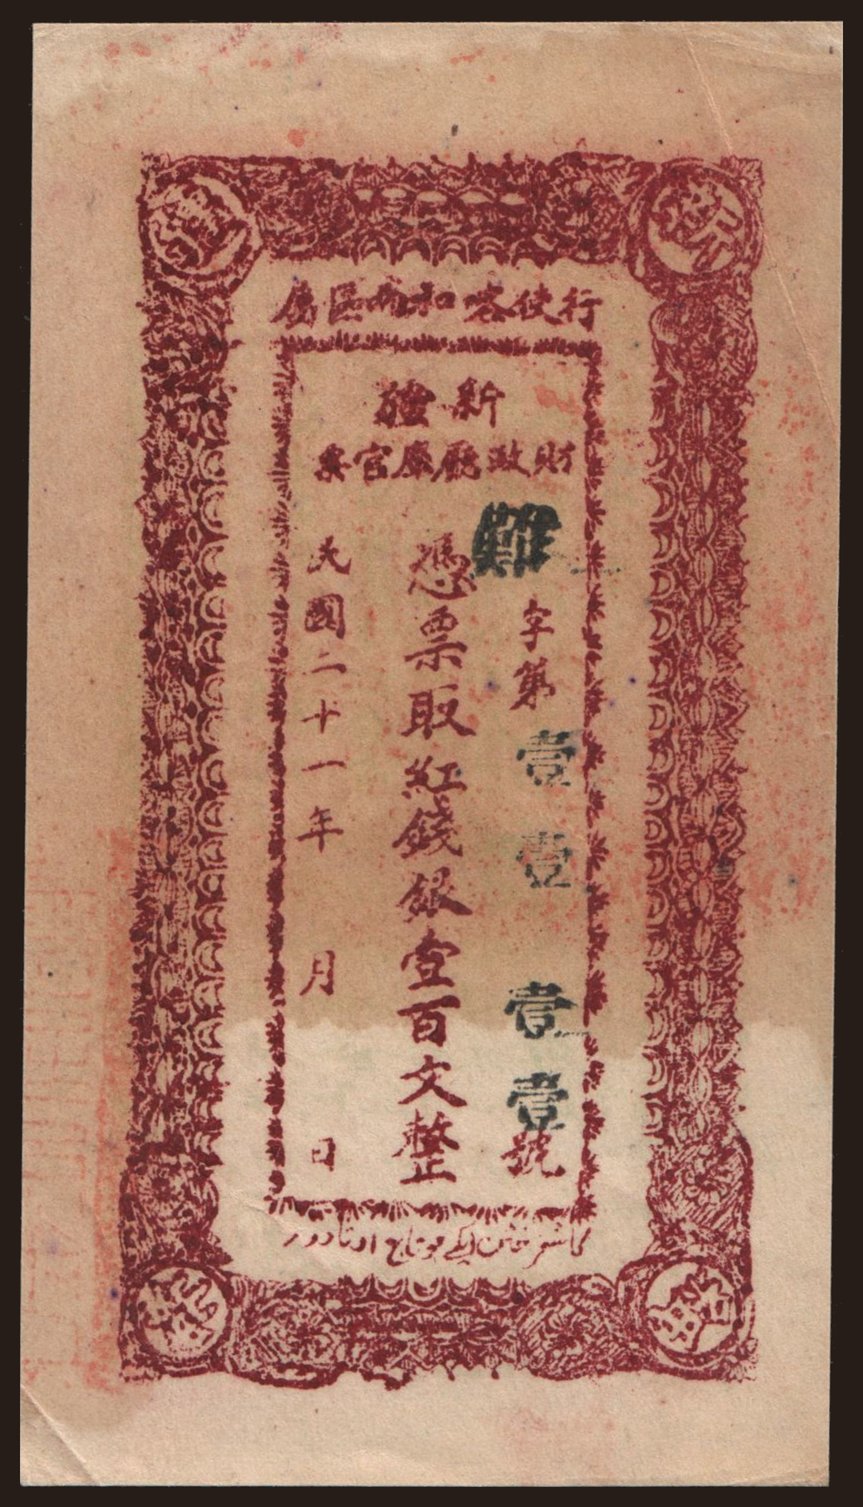 新
疆
行使喀和兩區屬
新疆
財政廳庫官票
字第壹壹壹壹號
憑票取紅錢銀壹百文整
民國二十一年 月 日